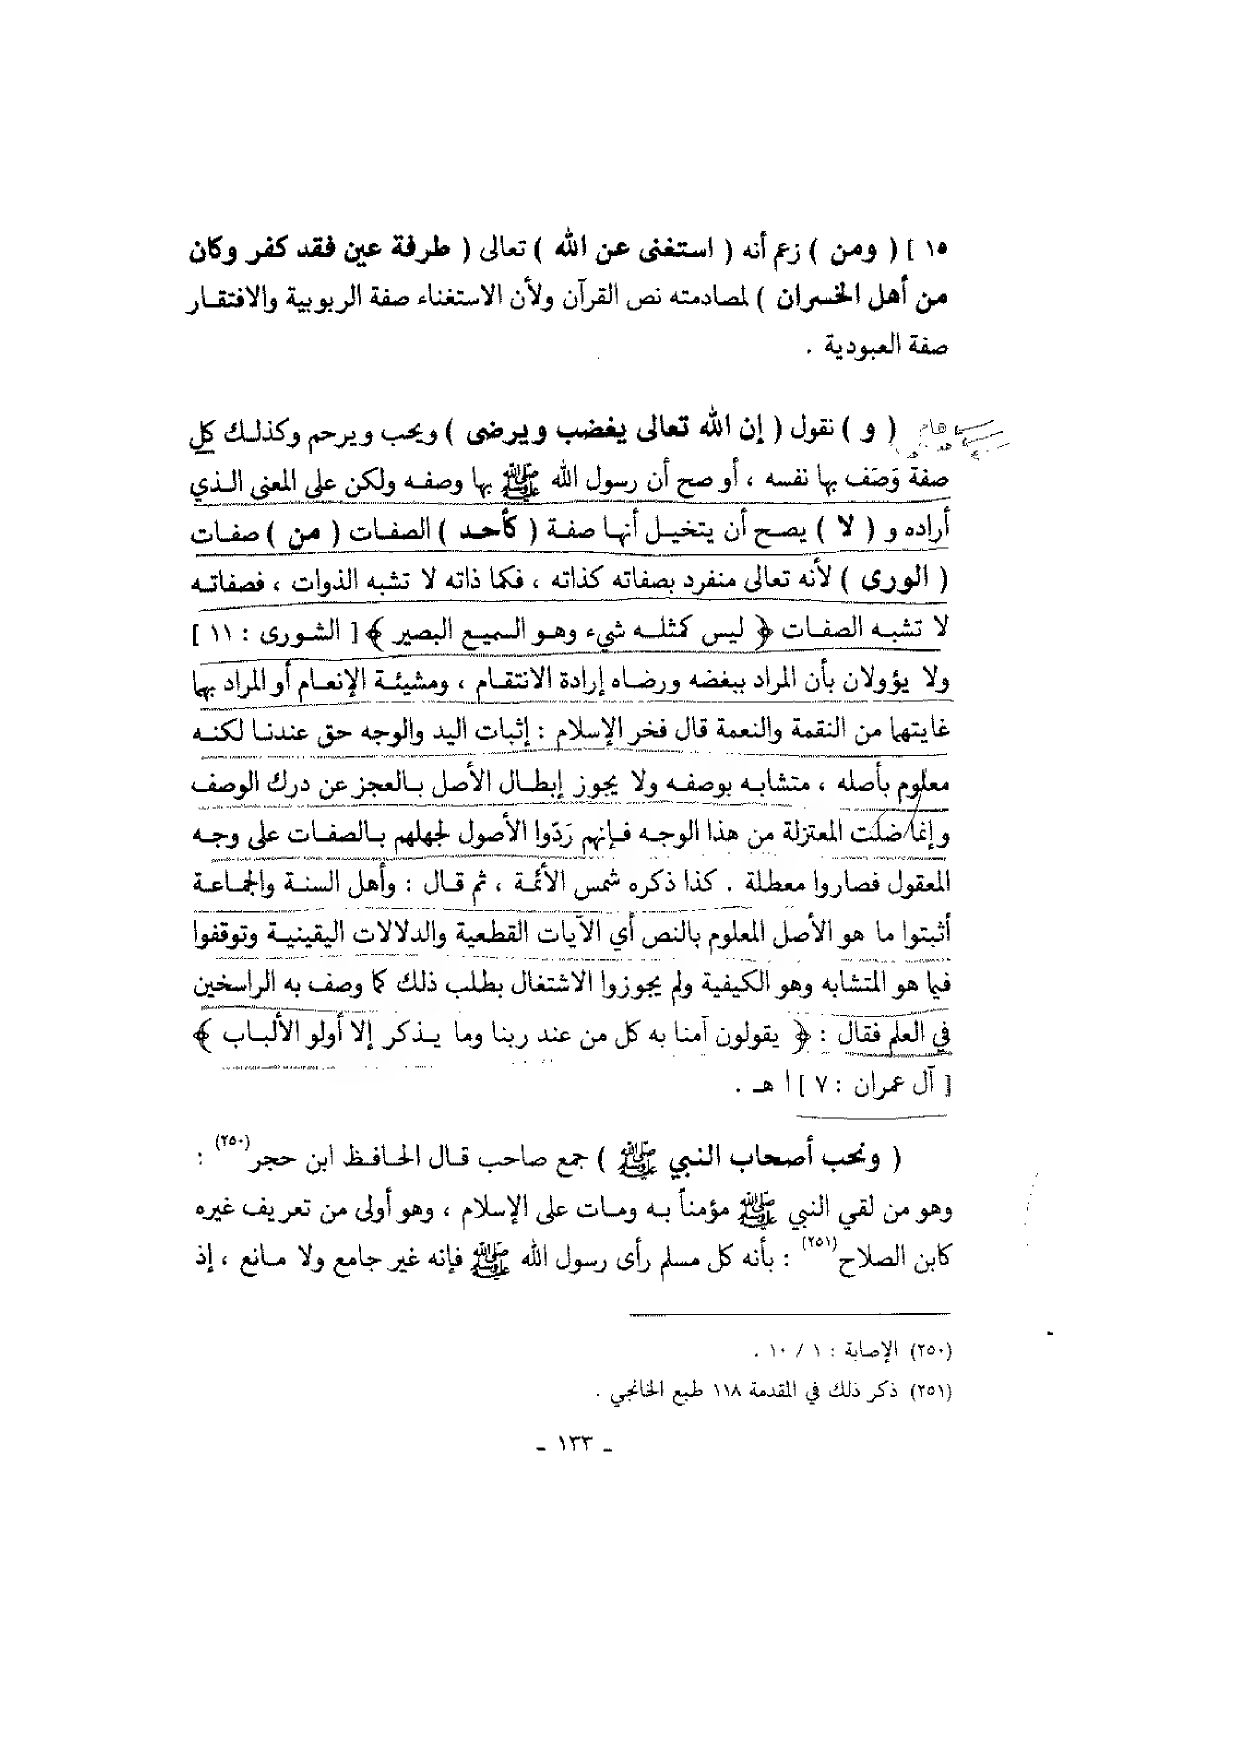 ١٥ ] ( ومن ) زعم أنه ( استغنى عن الله ) تعالى ( طرفة عين فقد كفر وكان
من أهل الخسران ) لمصادمته نص القرآن ولأن الاستغناء صفة الربوبية والافتقـار
صفة العبودية .
( و ) نقول ( إن الله تعالى يغضب ويرضى ) ويحب ويرحم وكذلـك كل
هام
صفة وَصَف بها نفسه ، أو صح أن رسول الله ﷺ بها وصفـه ولكن على المعنى الـذي
أراده و ( لا ) يصـح أن يتخيـل أنهـا صفـة ( كأحـد ) الصفـات ( من ) صفـات
( الورى ) لأنه تعالى منفرد بصفاته كذاته ، فكما ذاته لا تشبه الذوات ، فصفاتـه
لا تشبـه الصفـات ﴿ ليس كمثلـه شيء وهـو السميـع البصير ﴾ [ الشـورى : ١١ ]
ولا يؤولان بأن المراد ببغضه ورضاه إرادة الانتقـام ، ومشيئـة الإنعـام أو المراد بها
غايتها من النقمة والنعمة قال فخر الإسلام : إثبات اليد والوجه حق عندنـا لكنـه
معلوم بأصله ، متشابـه بوصفـه ولا يجوز إبطـال الأصل بـالعجز عن درك الوصف
وإنما ضلت المعتزلة من هذا الوجـه فـإنهم رَدّوا الأصول لجهلهم بـالصفـات على وجـه
المعقول فصاروا معطلة . كذا ذكره شمس الأئمـة ، ثم قـال : وأهل السنـة والجمـاعـة
أثبتوا ما هو الأصل المعلوم بالنص أي الآيات القطعية والدلالات اليقينيـة وتوقفوا
فيما هو المتشابه وهو الكيفية ولم يجوزوا الاشتغال بطلب ذلك كما وصف به الراسخين
في العلم فقال : ﴿ يقولون آمنا به كل من عند ربنا وما يـذكر إلا أولو الألبـاب ﴾
[ آل عمران : ٧ ] ا هـ .
( ونحب أصحاب النبي ﷺ ) جمع صاحب قـال الحـافـظ ابن حجر(٢٥٠) :
وهو من لقي النبي ﷺ مؤمناً بـه ومـات على الإسلام ، وهو أولى من تعريف غيره
كابن الصلاح(٢٥١) : بأنه كل مسلم رأى رسول الله ﷺ فإنه غير جامع ولا مـانع ، إذ
(٢٥٠) الإصابة : ١ / ١٠ .
(٢٥١) ذكر ذلك في المقدمة ١١٨ طبع الخانجي .
ـ ١٣٣ ـ